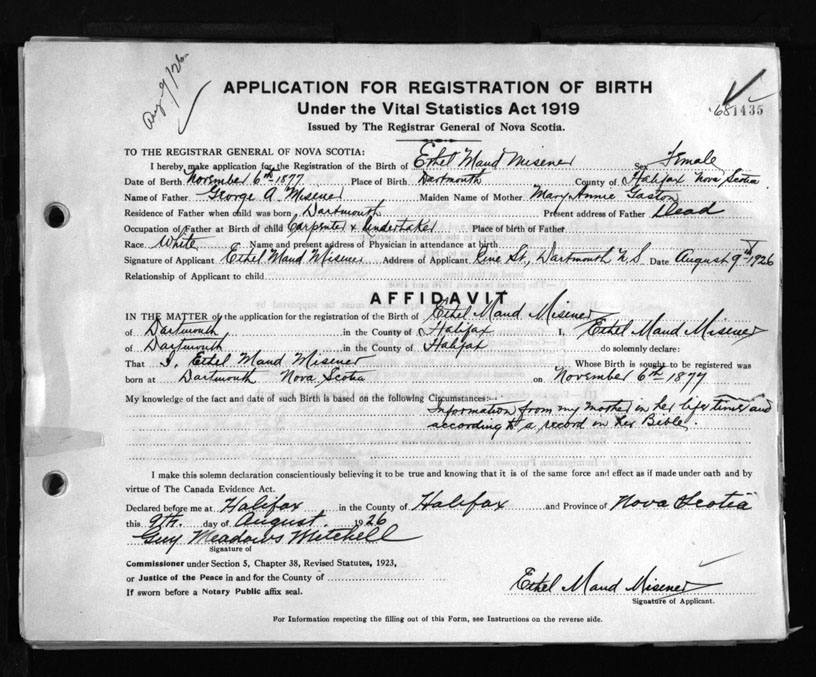 Aug 9/26
APPLICATION FOR REGISTRATION OF BIRTH
Under the Vital Statistics Act 1919
Issued by The Registrar General of Nova Scotia.
681435
TO THE REGISTRAR GENERAL OF NOVA SCOTIA:
I hereby make application for the Registration of the Birth of Ethel Maud Misener Sex Female
Date of Birth November 6th 1877 Place of Birth Dartmouth County of Halifax Nova Scotia
Name of Father George A Misener Maiden Name of Mother Mary Annie Gaston
Residence of Father when child was born Dartmouth Present address of Father Dead
Occupation of Father at Birth of child Carpenter & Undertaker Place of birth of Father
Race White Name and present address of Physician in attendance at birth
Signature of Applicant Ethel Maud Misener Address of Applicant Pine St, Dartmouth N.S Date August 9th 1926
Relationship of Applicant to child
AFFIDAVIT
IN THE MATTER of the application for the registration of the Birth of Ethel Maud Misener
of Dartmouth, in the County of Halifax I, Ethel Maud Misener
of Dartmouth in the County of Halifax do solemnly declare:
That I, Ethel Maud Misener Whose Birth is sought to be registered was
born at Dartmouth Nova Scotia on November 6th 1877
My knowledge of the fact and date of such Birth is based on the following Circumstances:
Information from my mother in her life time and
according to a record in her Bible.
I make this solemn declaration conscientiously believing it to be true and knowing that it is of the same force and effect as if made under oath and by
virtue of The Canada Evidence Act.
Declared before me at Halifax, in the County of Halifax and Province of Nova Scotia
this 9th. day of August. 1926
Guy Meadows Mitchell
Signature of
Commissioner under Section 5, Chapter 38, Revised Statutes, 1923,
or Justice of the Peace in and for the County of
If sworn before a Notary Public affix seal.
Ethel Maud Misener
Signature of Applicant.
For Information respecting the filling out of this Form, see Instructions on the reverse side.